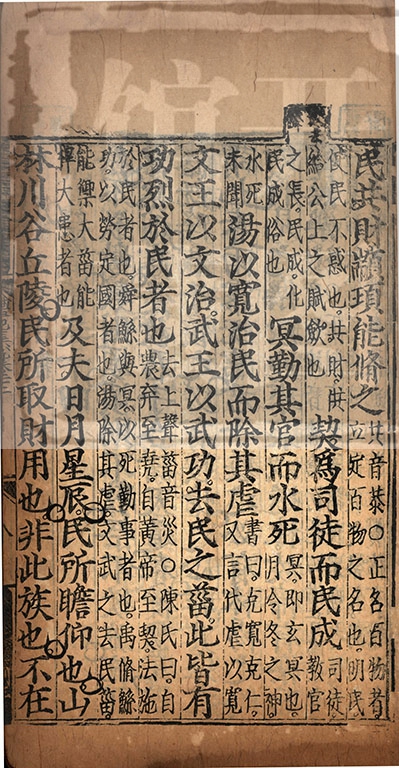 民共財顓頊能脩之共音恭○正名百物者立定百物之名也明民
使民不惑也共財供給公上之賦斂也契爲司徒而民成司徒教官
之長民成化民成俗也冥勤其官而水死冥即玄冥也月令冬之神
水死未聞湯以寬治民而除其虐書曰克寬克仁又言代虐以寬
文王以文治武王以武功去民之菑此皆有
功烈於民者也去上聲菑音災○陳氏曰自農棄至堯自黃帝至契法施
於民者也舜鯀與冥以死勤事者也禹脩鯀功以勞定國者也湯除其虐文武之去民菑
能禦大菑能捍大患者也及夫日月星辰民所瞻仰也山
林川谷丘陵民所取財用也非此族也不在